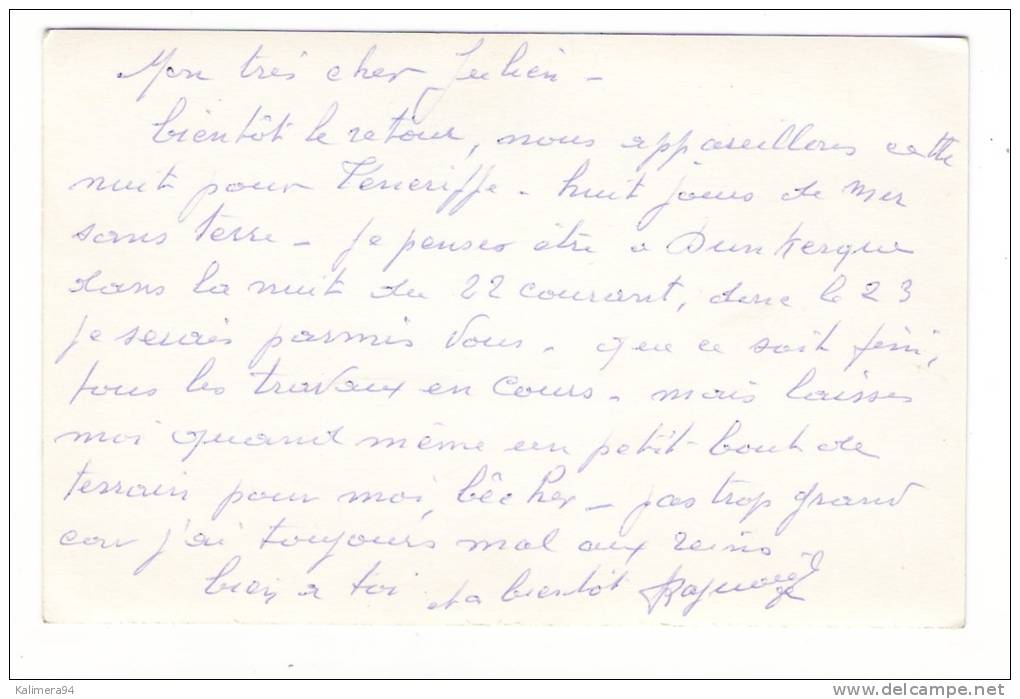 Mon très cher Julien -
bientôt le retour, nous appareillons cette
nuit pour Ténériffe - huit jours de mer
sans terre - je penses être a Dunkerque
dans la nuit du 22 courant, donc le 23
je serais parmis vous - que ce soit fini,
tous les travaux en cours - mais laisses
moi quand même un petit bout de
terrain pour moi, bêcher - pas trop grand
car j'ai toujours mal aux reins -
bien a toi et a bientôt
Kalimera94
www.delcampe.net